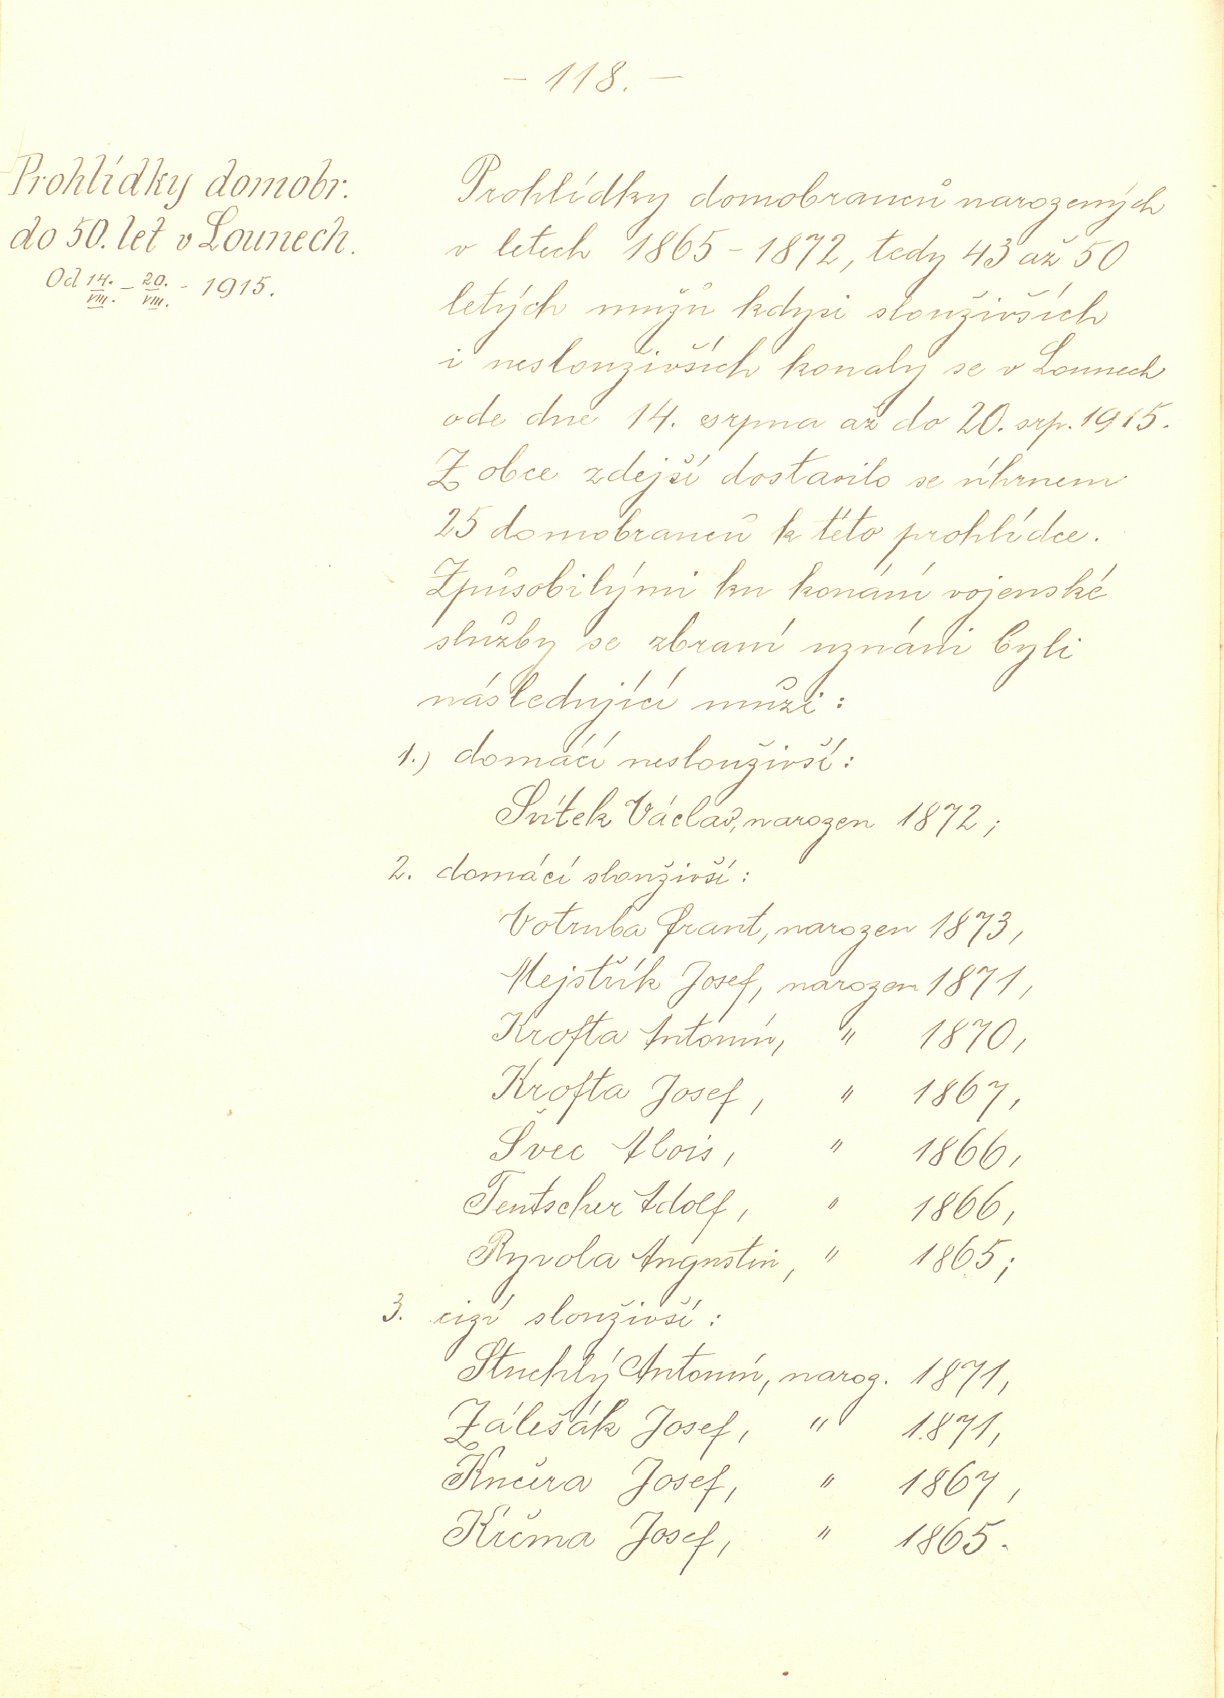 – 118. –
Prohlídky domobr.
do 50. let v Lounech.
Od 14./VIII. – 20./VIII. - 1915.
Prohlídky domobranců narozených
v letech 1865 – 1872, tedy 43 až 50
letých mužů kdysi sloužívších
i nesloužívších konaly se v Lounech
ode dne 14. srpna až do 20. srp. 1915.
Z obce zdejší dostavilo se úhrnem
25 domobranců k této prohlídce.
Způsobilými ku konání vojenské
služby se zbraní uznáni byli
následující muži :
1.) domácí nesloužívší :
Svítek Václav, narozen 1872 ;
2. domácí sloužívší :
Votruba Frant, narozen 1873,
Mejstřík Josef, narozen 1871,
Krofta Antonín, " 1870,
Krofta Josef, " 1867,
Švec Alois, " 1866,
Tentscher Adolf, " 1866,
Ryvola Augustin, " 1865;
3. cizí sloužívší :
Stuchlý Antonín, naroz. 1871,
Zálešák Josef, " 1871,
Josef, " 1867,
Krčma Josef, " 1865.